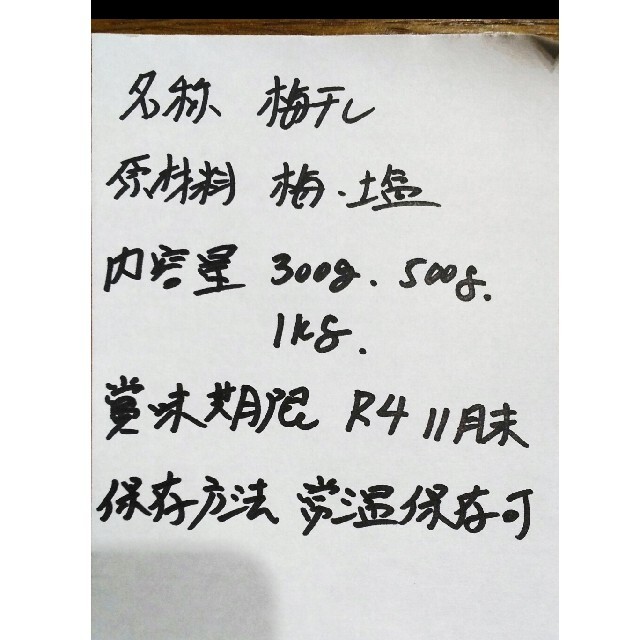 名称 梅干し
原材料 梅・塩
内容量 300g. 500g.
1kg.
賞味期限 R4 11月末
保存方法 常温保存可